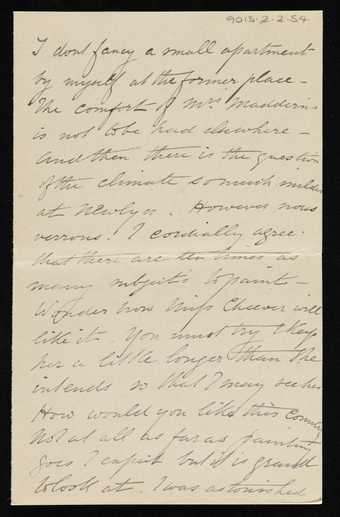 9015-2-2-54
I dont fancy a small apartment
by myself at the former place -
The comfort of Mrs Maddern's
is not to be had elsewhere -
and then there is the question
of the climate so much milder
at Newlyn. However nous
verrons! I cordially agree
that there are ten times as
many subjects to paint -
Wonder how Miss Cheever will
like it. You must try & keep
her a little longer than she
intends so that I may see her
How would you like this country
Not at all as far as painting
goes I expect but it is grand
to look at. I was astonished